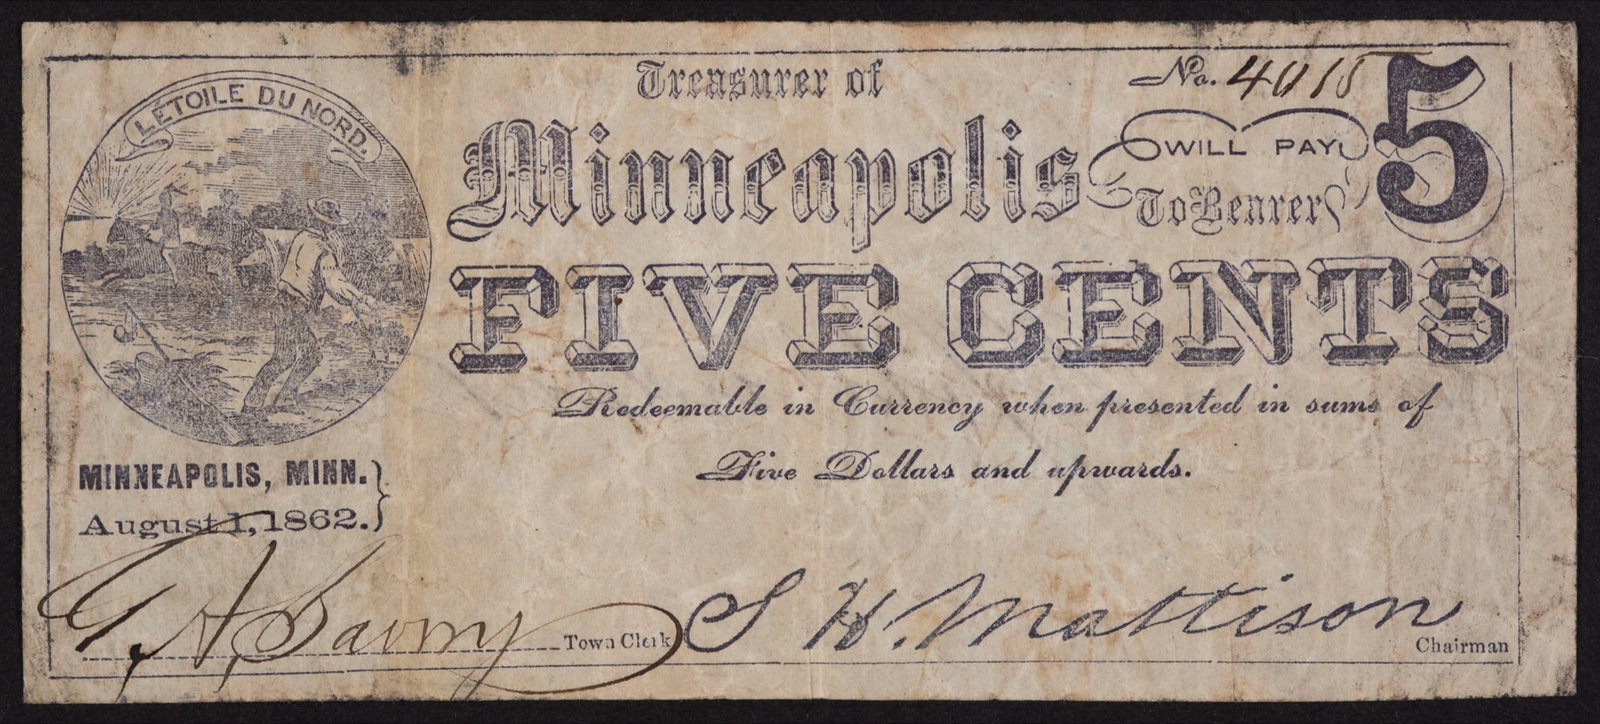 L'ÉTOILE DU NORD.
Treasurer of
No. 4018
5
Minneapolis
WILL PAY
To Bearer
FIVE CENTS
Redeemable in Currency when presented in sums of
Five Dollars and upwards.
MINNEAPOLIS, MINN.
August 1, 1862.
Town Clerk
S H. Mattison
Chairman